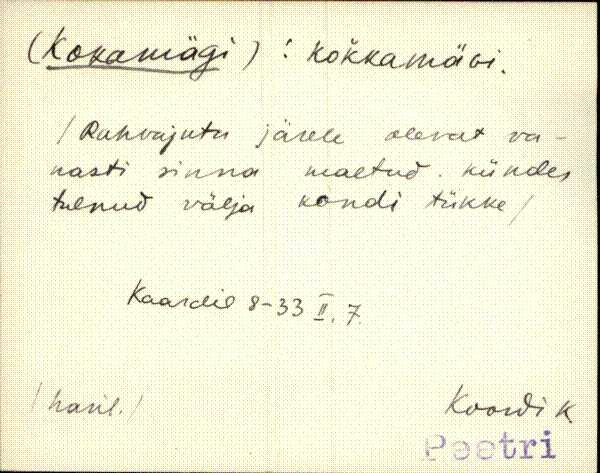 (Kokamägi) : kokkamäɢi.
/Rahvajutu järele olevat va-
nasti sinna maetud. kündes
tulnud välja kondi tükke/
Kaardil 8-33 II. 7.
/haril./
Koordi k.
Peetri